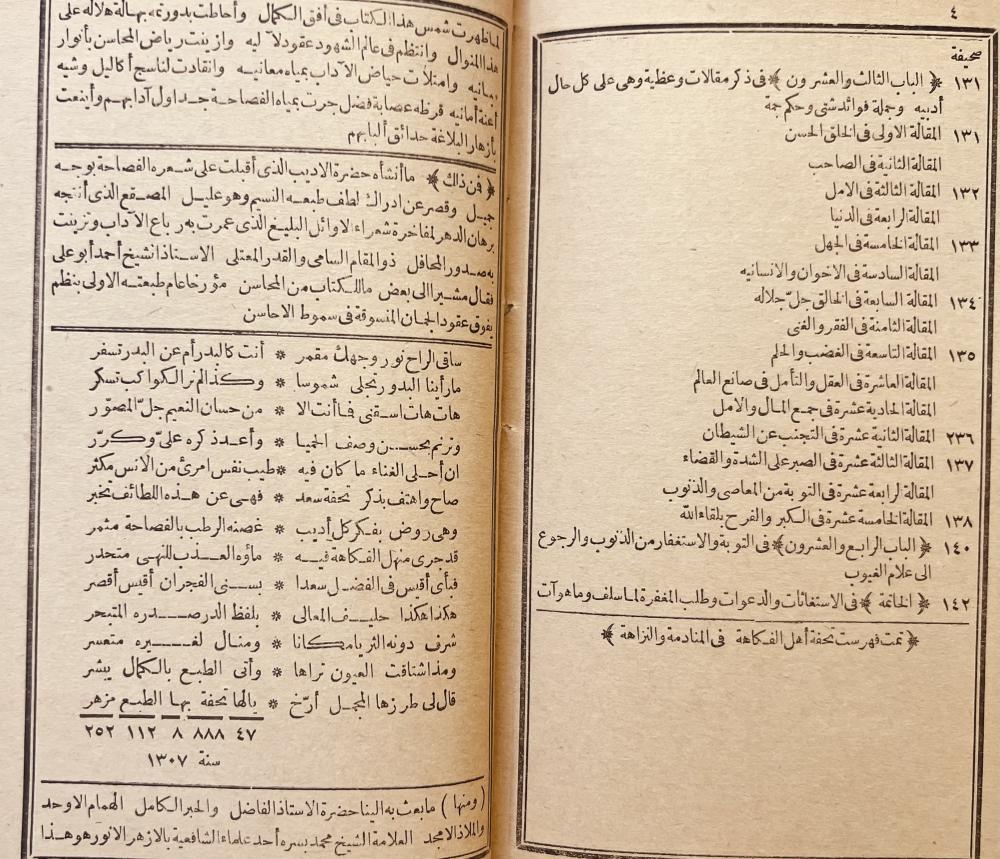 ٤
صحيفة
١٣١ ﴿ الباب الثالث والعشرون ﴾ فى ذكر مقالات وعظية وهى على كل حال
أدبيه وجملة فوائد شتى وحكم جمة
١٣١ المقالة الاولى فى الخلق الحسن
المقالة الثانية فى الصاحب
١٣٢ المقالة الثالثة فى الامل
المقالة الرابعة فى الدنيا
١٣٣ المقالة الخامسة فى الجهل
المقالة السادسة فى الاخوان والانسانيه
١٣٤ المقالة السابعة فى الخالق جلّ جلاله
المقالة الثامنة فى الفقر والغنى
١٣٥ المقالة التاسعة فى الغضب والحلم
المقالة العاشرة فى العقل والتأمل فى صانع العالم
المقالة الحادية عشرة فى جمع المال والامل
٢٣٦ المقالة الثانية عشرة فى التجنب عن الشيطان
١٣٧ المقالة الثالثة عشرة فى الصبر على الشدة والقضاء
المقالة الرابعة عشرة فى التوبة من المعاصى والذنوب
١٣٨ المقالة الخامسة عشرة فى الكبر والفرح بلقاء الله
١٤٠ ﴿ الباب الرابع والعشرون ﴾ فى التوبة والاستغفار من الذنوب والرجوع
الى علام الغيوب
١٤٢ ﴿ الخاتمة ﴾ فى الاستغاثات والدعوات وطلب المغفرة لما سلف وما هو آت
﴿ تمت فهرست تحفة أهل الفكاهة فى المنادمة والنزاهة ﴾
لما ظهرت شمس هذا الكتاب فى أفق الكمال وأحاطت بدورته بهالة هلاله على
هذا المنوال وانتظم فى عالم الشهود عقود لآليه وازينت رياض المحاسن بأنوار
مبانيه وامتلأت حياض الآداب بمياه معانيه وانقادت لناسج أكاليل وشيه
أعنة أمانيه قرظه عصابة فضل جرت بمياه الفصاحة جداول آدابهم وأينعت
بأزهار البلاغة حدائق ألبابهم
﴿ فمن ذلك ﴾ ما أنشأه حضرة الاديب الذى أقبلت على شعره الفصاحة بوجه
جميل وقصر عن ادراك لطف طبعه النسيم وهو عليل المصقع الذى أنتجه
برهان الدهر لمفاخرة شعراء الاوائل البليغ الذى عمرت به رباع الآداب وتزينت
به صدور المحافل ذو المقام السامى والقدر المعتلى الاستاذ الشيخ أحمد أبو على
فقال مشيرا الى بعض ما للكتاب من المحاسن مؤرخا عام طبعته الاولى بنظم
يفوق عقود الجمان المنسوقة فى سموط الاحاسن
ساقى الراح نور وجهك مقمر * أنت كالبدر أم عن البدر تسفر
ما رأينا البدور تجلى شموسا * وكذا لم نر الكواكب تسكر
هات هات اسقنى فما أنت الا * من حسان النعيم جلّ المصوّر
وترنم بحسن وصف الحميا * وأعد ذكره علىّ وكرّر
ان أحلى الغناء ما كان فيه * طيب نفس امرئ من الانس مكثر
صاح واهتف بذكر تحفة سعد * فهى عن هذه اللطائف تخبر
وهى روض بفكر كل أديب * غصنه الرطب بالفصاحة مثمر
قد جرى منهل الفكاهة فيه * ماؤه العذب للنهى متحدر
فبأى أقيس فى الفضل سعدا * بسنى الفجر ان أقيس أقصر
هكذا هكذا حليف المعالى * يلفظ الدر صدره المتبحر
شرف دونه الثريا مكانا * ومنال لغيره متعسر
ومذ اشتاقت العيون تراها * وأتى الطبع بالكمال يبشر
قال لى طرزها المجمل أرّخ * يالها تحفة بها الطبع مزهر
٤٧ ٨٨٨ ٨ ١١٢ ٢٥٢
سنة ١٣٠٧
(ومنها) ما بعث به الينا حضرة الاستاذ الفاضل والحبر الكامل الهمام الاوحد
والملاذ الامجد العلامة الشيخ محمد بسره أحد علماء الشافعية بالازهر الانور هو هذا